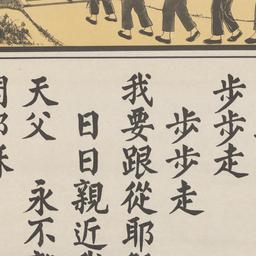 步步走
步步走
我要跟從耶穌
日日親近
天父 永不